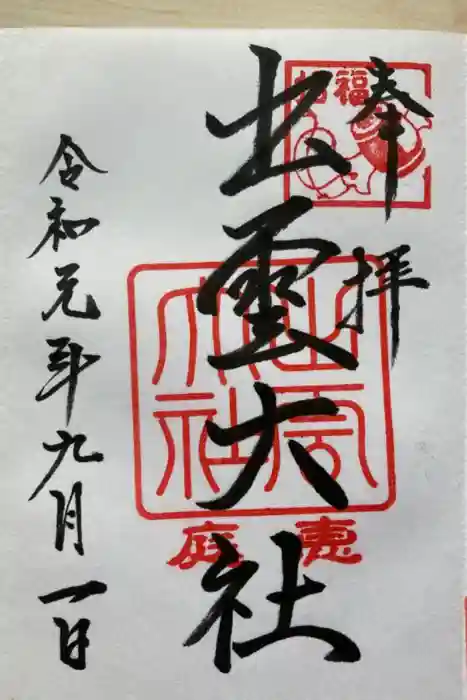 奉拝
出雲大社
令和元年九月一日
招福
出雲大社
恵庭